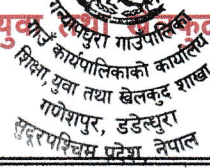 युवा तथा खेलकुद
गन्यापधुरा गाउँपालिका
गाउँ कार्यपालिकाको कार्यालय
शिक्षा, युवा तथा खेलकुद शाखा
गणेशपुर, डडेल्धुरा
सुदूरपश्चिम प्रदेश, नेपाल